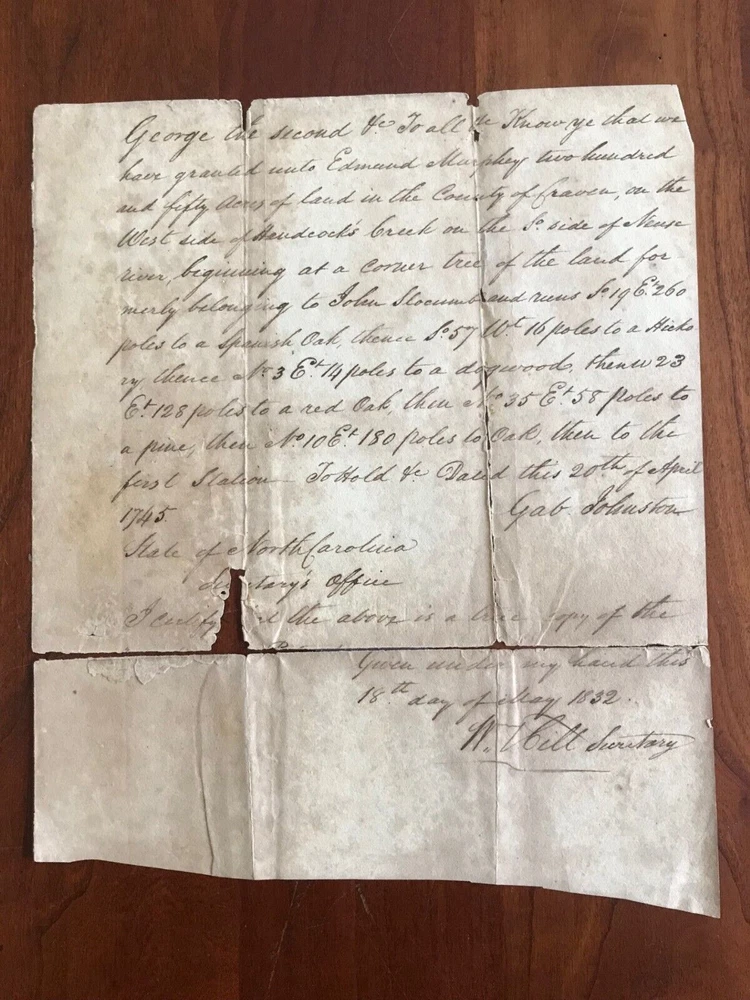 George the second &c To all &c Know ye that we
have granted unto Edmund Murphey two hundred
and fifty Acres of land in the County of Craven, on the
West side of Handcock's Creek on the So. side of Neuse
river, beginning at a corner tree of the land for
merly belonging to John Slocumb and runs So. 19 Et. 260
poles to a Spanish Oak, thence So. 57 Wt. 16 poles to a Hicko
ry thence No. 3 Et. 14 poles to a dogwood, thence 23
Et. 128 poles to a red Oak, then No. 35 Et. 58 poles to
a pine, then No. 10 Et. 180 poles to Oak, then to the
first Station To Hold &c Dated this 20th of April
1745. Gab Johnston
State of North Carolina
Se tary's Office
I certify the above is a true copy of the
Given under my hand this
18th day of May 1832.
W. Hill Secretary